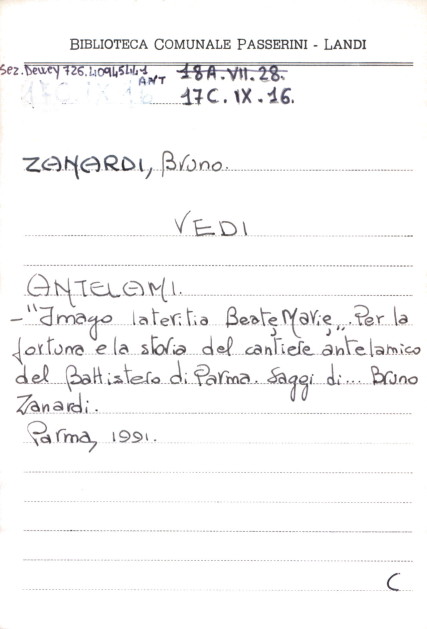 BIBLIOTECA COMUNALE PASSERINI - LANDI
Sez. Dewey 726.40945441
ANT
18A. VII. 28.
17C. IX. 16.
ZANARDI, Bruno.
VEDI
ANTELAMI.
- "Imago lateritia Beate Marie„. Per la
fortuna e la storia del cantiere antelamico
del Battistero di Parma. Saggi di... Bruno
Zanardi.
Parma, 1991.
C